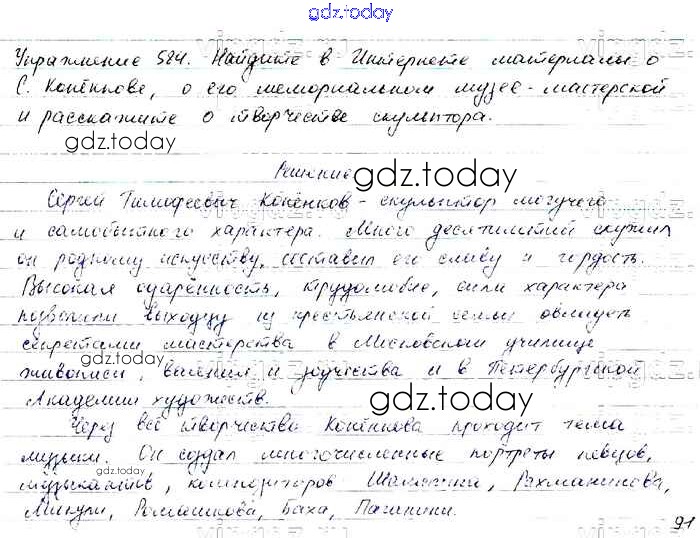 gdz.today
Упражнение 584. Найдите в Интернете материалы о
С. Конёнкове, о его мемориальном музее-мастерской
и расскажите о творчестве скульптора.
gdz.today
Решение
gdz.today
Сергей Тимофеевич Конёнков - скульптор могучего
и самобытного характера. Много десятилетий служил
он родному искусству, составил его славу и гордость.
Высокая одарённость, трудолюбие, сила характера
позволили выходцу из крестьянской семьи овладеть
секретами мастерства в Московском училище
gdz.today
живописи, ваяния и зодчества и в Петербургской
Академии художеств.
gdz.today
Через всё творчество Конёнкова проходит тема
музыки. Он создал многочисленные портреты певцов,
gdz.today
музыкантов, композиторов Шаляпина, Рахманинова,
Микули, Ромашкова, Баха, Паганини.
91